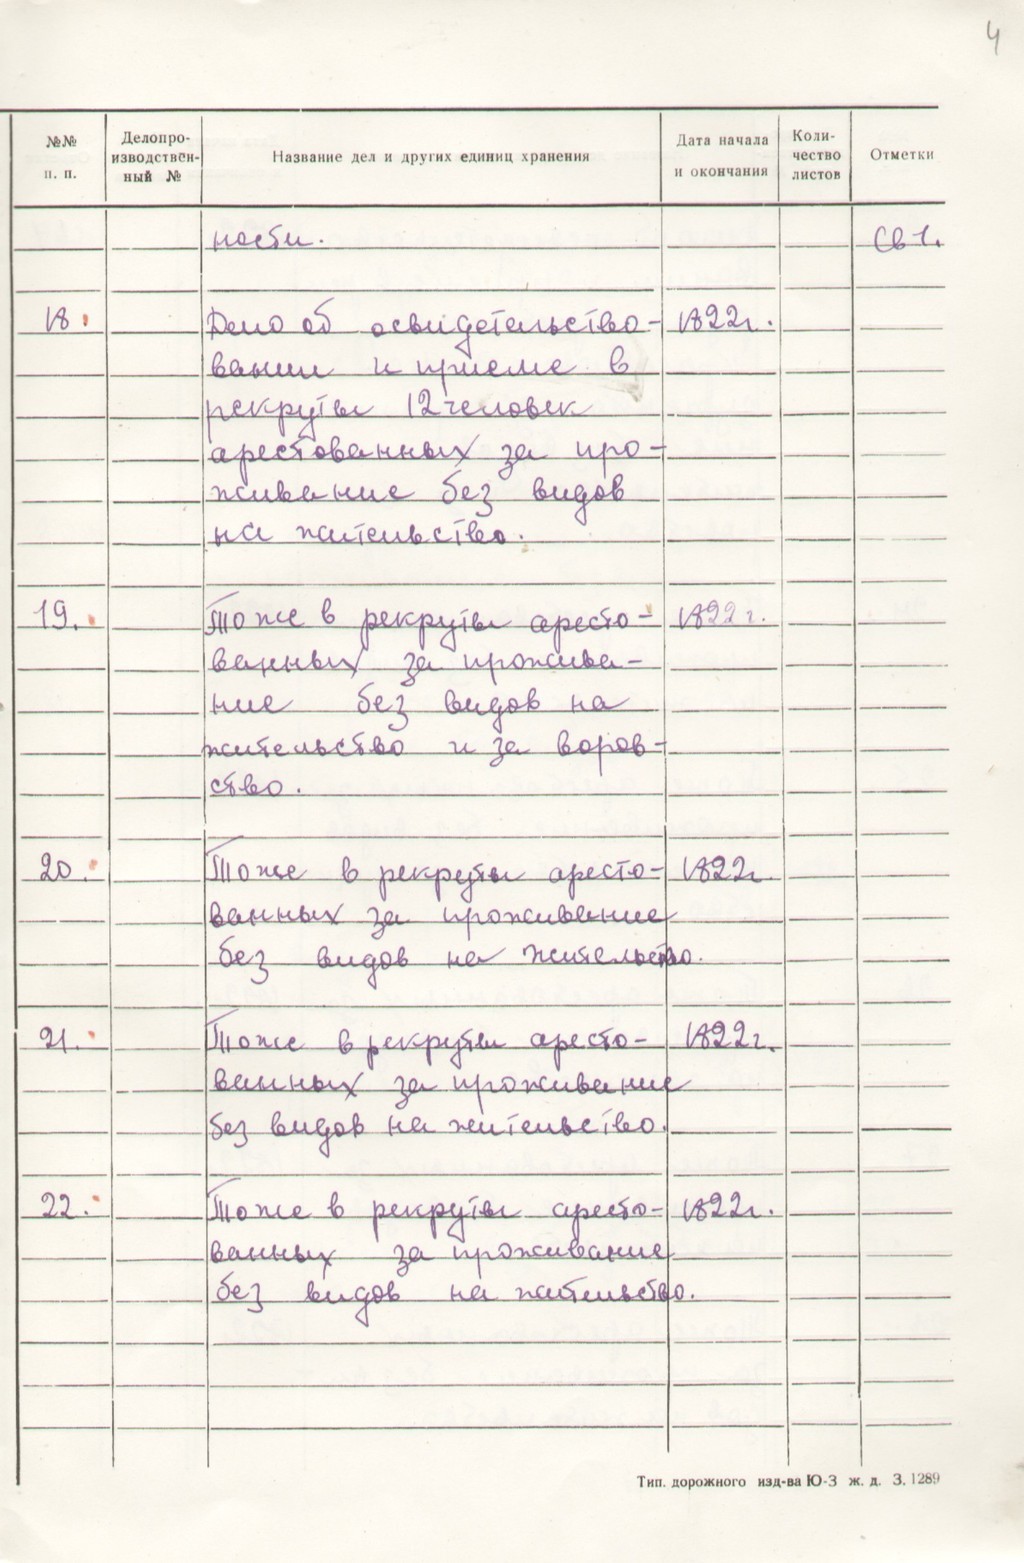 4
№№ п. п.
Делопро-
изводствен-
ный №
Название дел и других единиц хранения
Дата начала
и окончания
Коли-
чество
листов
Отметки
ности. св 1.
18. Дело об освидетельство- 1822г.
вании и приеме в
рекруты 12 человек
арестованных за про-
живание без видов
на жительство.
19. Тоже в рекруты аресто- 1822г.
ванных за прожива-
ние без видов на
жительство и за воров-
ство.
20. Тоже в рекруты аресто- 1822г.
ванных за проживание
без видов на жительство.
21. Тоже в рекруты аресто- 1822г.
ванных за проживание
без видов на жительство.
22. Тоже в рекруты аресто- 1822г.
ванных за проживание
без видов на жительство.
Тип. дорожного изд-ва Ю-З ж. д. З. 1289